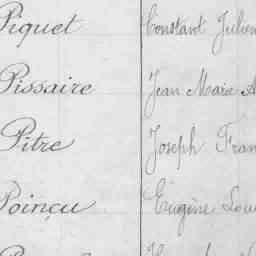 Piquet Constant Julien
Pissaire Jean Marie
Pitre Joseph Fran
Poinçu Eugène Lou